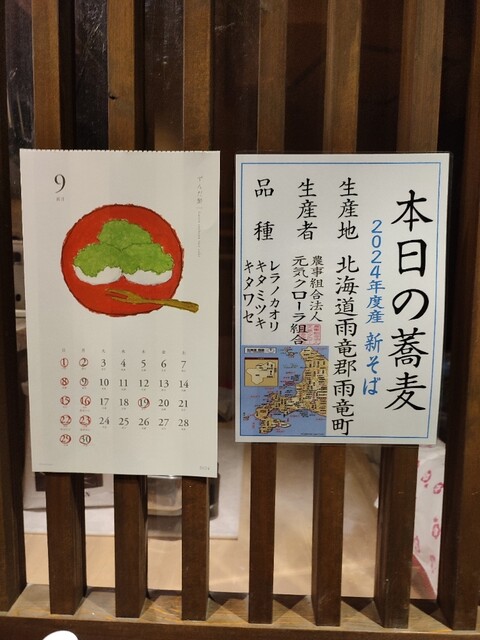 9
ずんだ餅
日 月 火 水 木 金 土
1 2 3 4 5 6 7
8 9 10 11 12 13 14
15 16 17 18 19 20 21
22 23 24 25 26 27 28
29 30
本日の蕎麦
2024年度産 新そば
生産地 北海道雨竜郡雨竜町
生産者 農事組合法人
元気クローラ組合
品種 レラノカオリ
キタミツキ
キタワセ